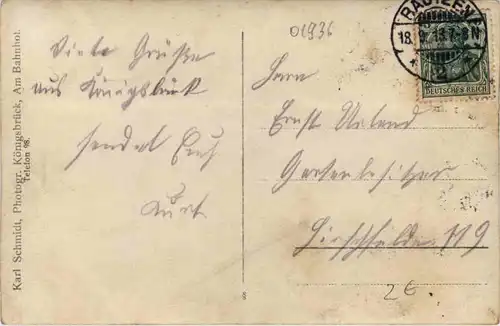 Karl Schmidt, Photogr. Königsbrück, Am Bahnhof.
Telefon 98.
Viele Grüße
aus Königsbrück
sendet Euch
Kurt
01936
BAUTZEN
18.9.13.7-8N
* 2 *
DEUTSCHES REICH
Herrn
Ernst
Gartenbesitzer
Hirschfelde 119
2€